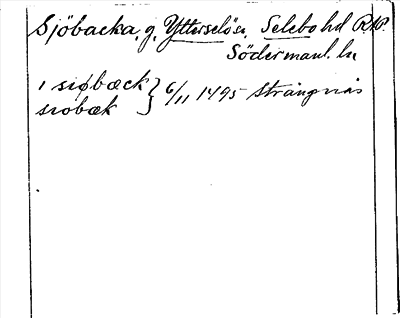 Sjöbacka, g. Ytterselö sn, Selebo hd RAP.
Södermanl. ln
i siøbæck } 6/11 1495 Strängnäs
siobæk